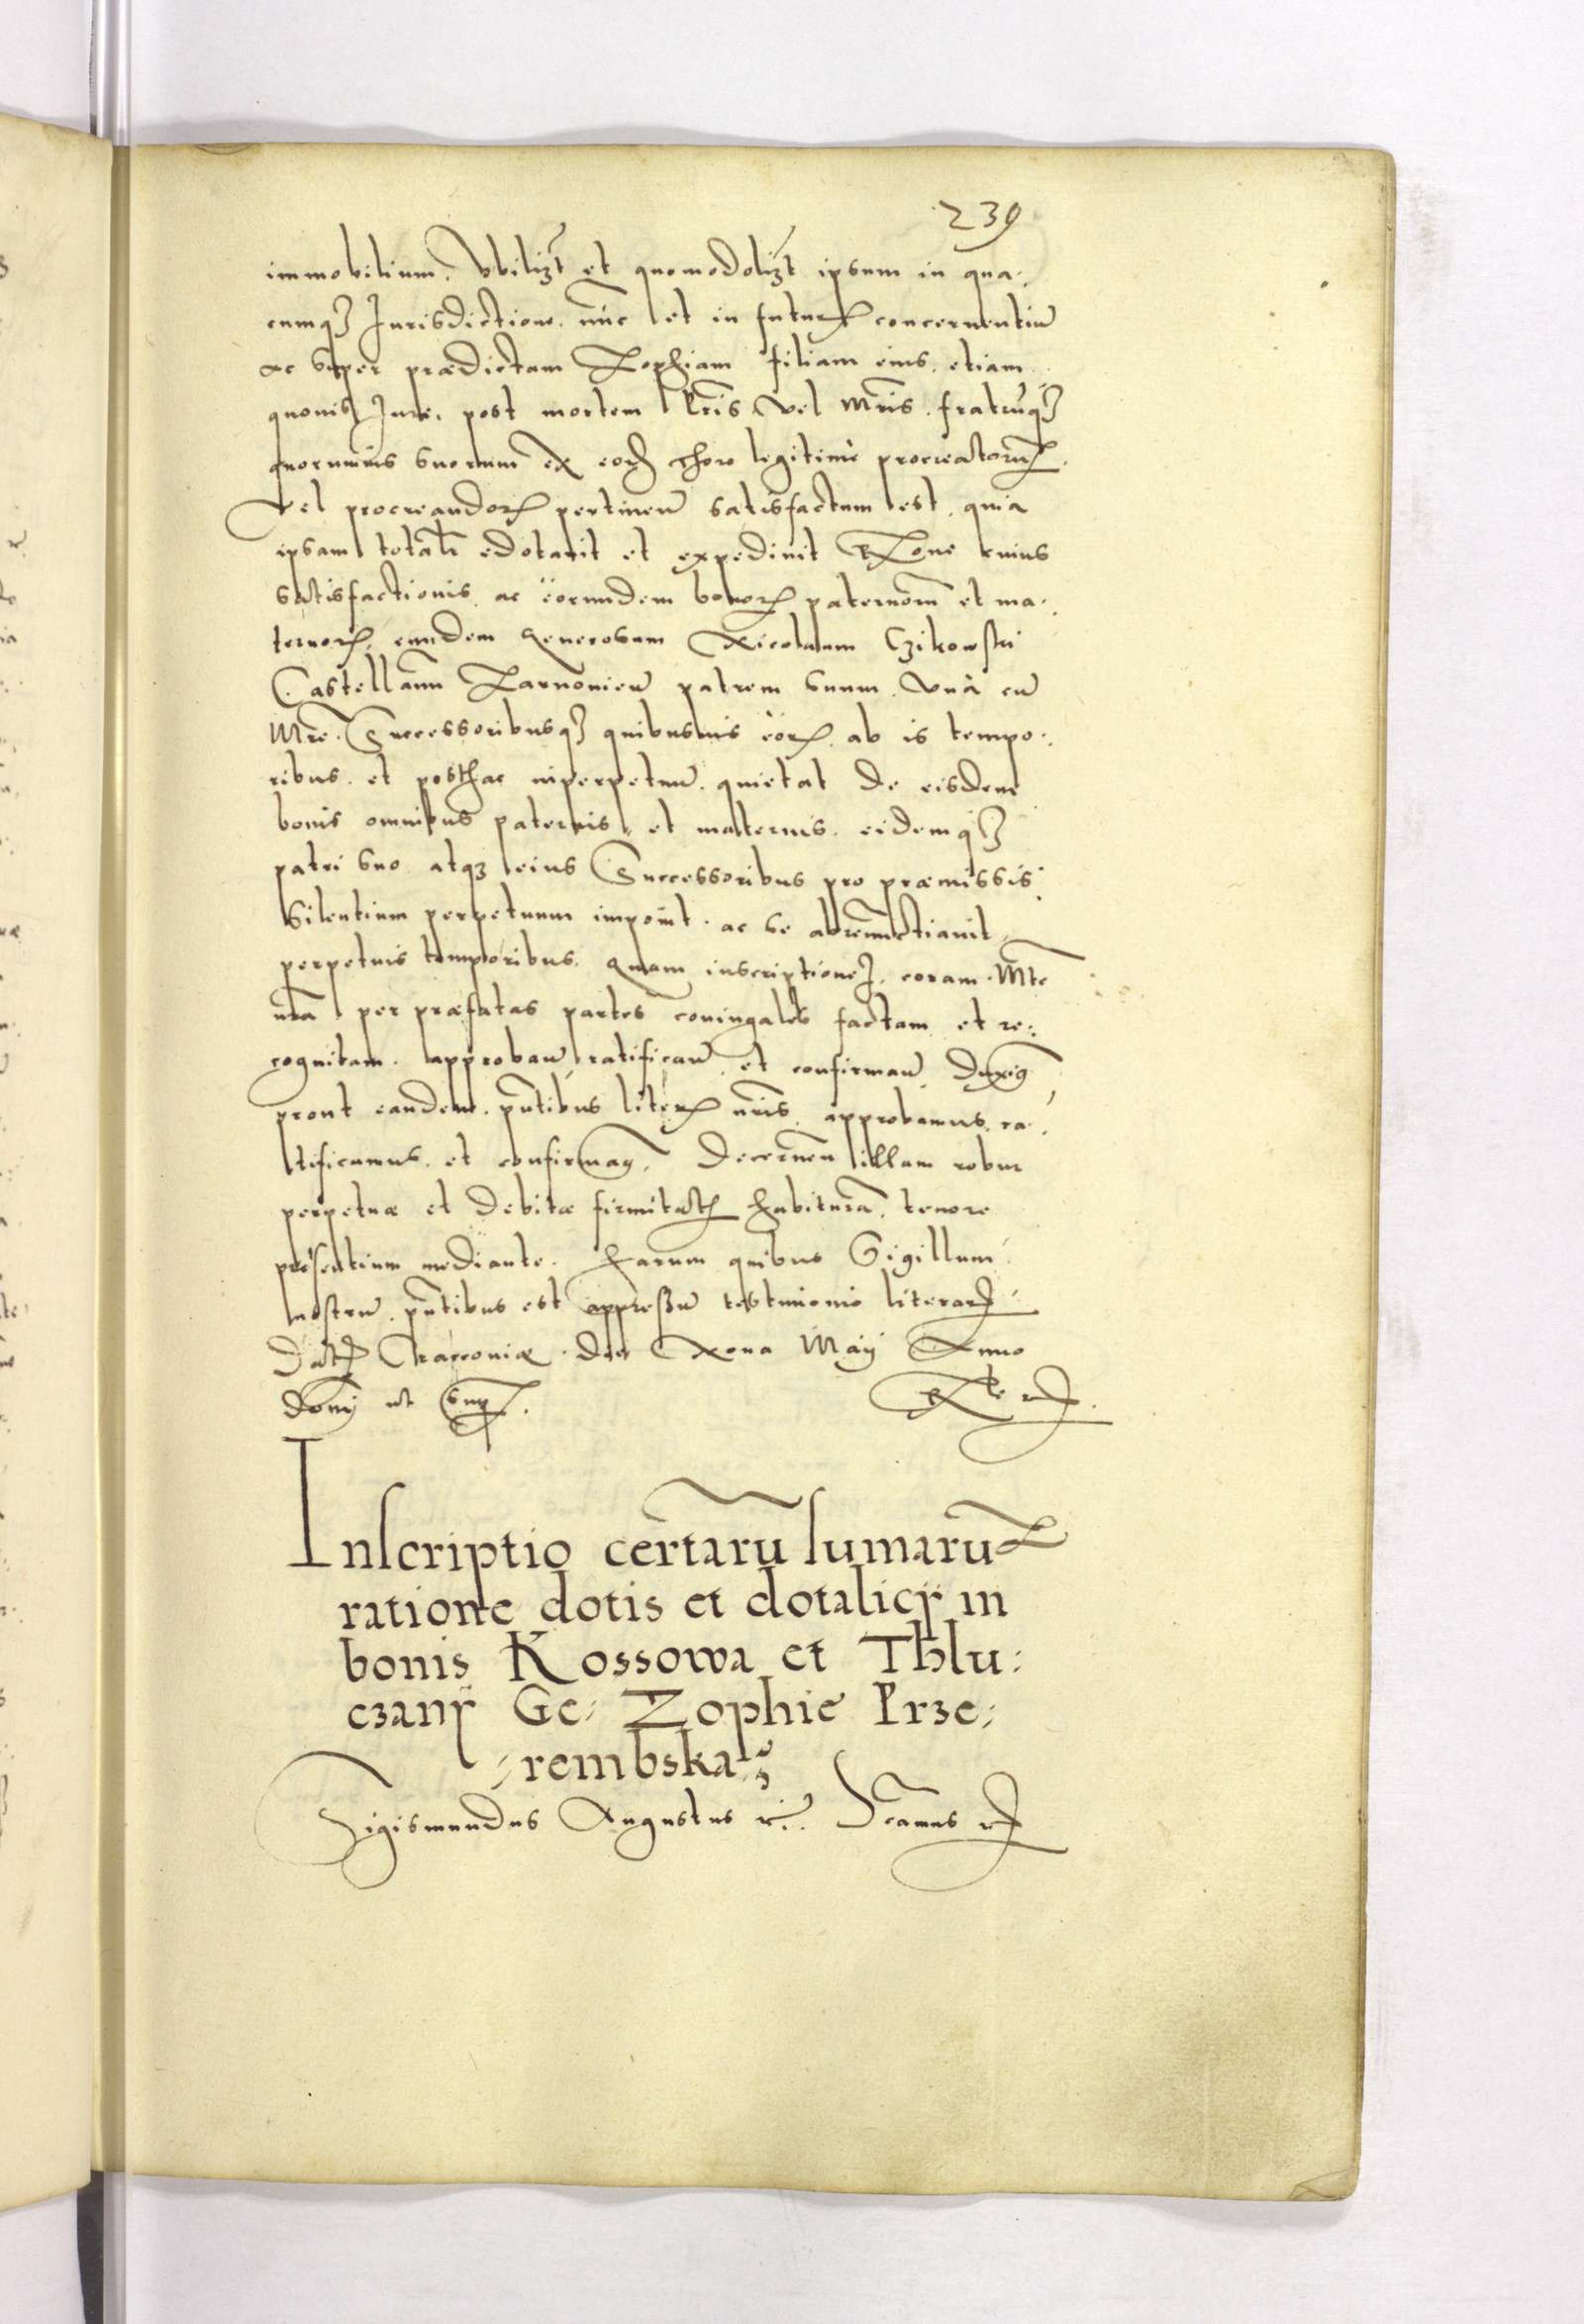 239
immobilium. Vbilizt et quomodolizt ipsum in qua.
cumqꝫ Iurisdictione. nūc et in futurꝝ concernentiū
ac super prædictam Zophiam filiam eius. etiam
quouis Iure. post mortem Pr̄is vel Mr̄is. fratrūqꝫ
quorumuis suorum ex eodꝫ thoro legitimè procreatorūꝝ
vel procreandorꝝ pertineñ satisfactum est. quia
ipsam totalr̄ edotauit et expediuit Rone cuius
satisfactionis. ac eorundem bonorꝝ paternorū et ma.
ternorꝝ. eundem Generosum Nicolaum Czikowski
Castellanū Zarnovieñ patrem suum. vnà cū
Mr̄e. Successoribusqꝫ quibusuis eorꝝ. ab is tempo.
ribus. et posthac inperpetuū. quietat de eisdem
bonis omnibus paternis, et maternis. eidemqꝫ
patri suo atqꝫ eius Successoribus pro præmissis
silentium perpetuum imponit. ac se abrenūctiauit
perpetuis temporibus. Quam inscriptionē. coram. Mte
nr̄a per præfatas partes coniugales factam et re.
cognitam. approbañ ratificañ et confirmañ duximꝰ
prout eandem. pn̄tibus literꝝ nr̄is approbamus. ra.
tificamus. et confirmamꝰ. Decerneñ illam robur
perpetuæ et debitæ firmitatis habiturā. tenore
præsentium mediante. Harum quibus Sigillum
nostrū. pn̄tibus est appressū testimonio literarꝝ
Datꝭ Cracouiæ. die Nona Maij Anno
Donj ut supꝝ. Rte
Inscriptio certarū sumarū
ratione dotis et dotalicÿ in
bonis Kossowa et Thlu:
czanÿ Ge: Zophie Prze:
:rembska
Sigismundus Augustus